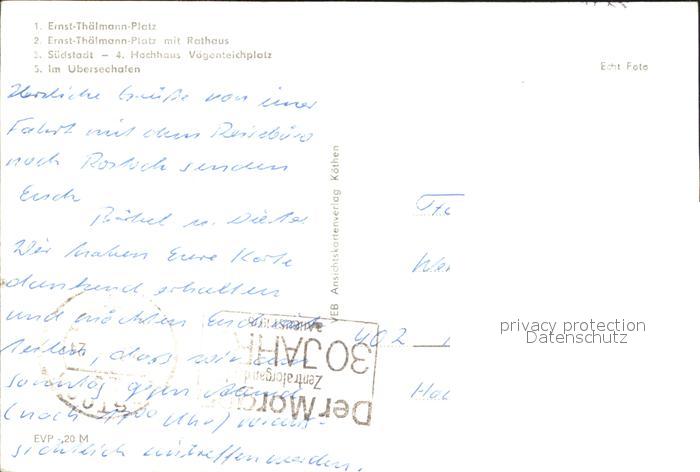 1. Ernst-Thälmann-Platz
2. Ernst-Thälmann-Platz mit Rathaus
3. Südstadt – 4. Hochhaus Vögenteichplatz
5. Im Überseehafen
Echt Foto
Herzliche Grüße von einer
Fahrt mit dem Reisebüro
nach Rostock senden
Euch
Bärbel u. Dieter
Wir haben Eure Karte
dankend erhalten
und möchten Euch mit-
teilen, dass wir am
Sonntag gegen Abend
(nach 00 Uhr) voraus-
sichtlich eintreffen werden.
EVP -,20 M
VEB Ansichtskartenverlag Köthen
402
Der Morgen
Zentralorgan
30 JAHRE
privacy protection
Datenschutz